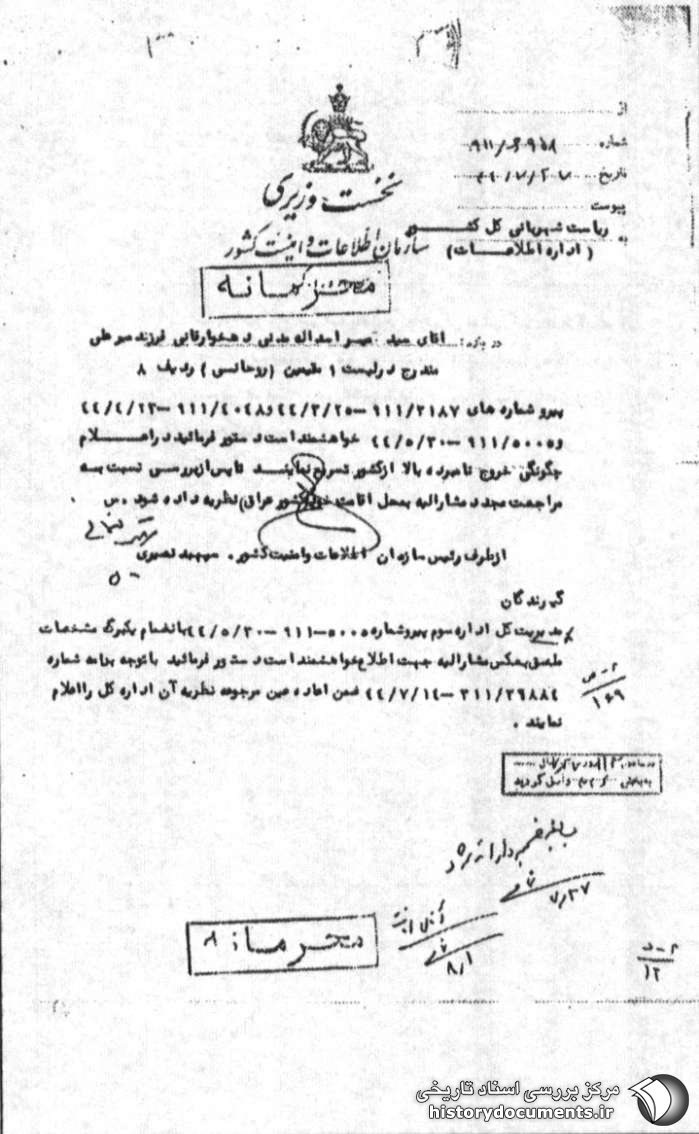 از
شماره ۹۱۱/
تاریخ
پیوست
نخست وزیری
ریاست شهربانی کل کشور
به
سازمان اطلاعات و امنیت کشور
(اداره اطلاعات)
محرمانه
درباره: آقای سید میر اسداله مدنی دهخوارقانی فرزند میرعلی
مندرج در لیست ۱ مقیمین (روحانی) ردیف ۸
پیرو شماره های ۹۱۱/۳۱۸۷ – ۴۴/۳/۲۵ و ۹۱۱/۴۰۴۸ – ۴۴/۴/۲۳
و ۹۱۱/۵۰۰۵ – ۴۴/۵/۳۰ خواهشمند است دستور فرمائید در اعلام
چگونگی خروج نامبرده بالا از کشور تسریع نمایند تا پس از بررسی نسبت به
مراجعت مجدد مشارالیه بمحل اقامت خود (کشور عراق) نظریه داده شود . س
از طرف رئیس سازمان اطلاعات و امنیت کشور . سپهبد نصیری
گیرندگان
مدیریت کل اداره سوم پیرو شماره ۵۰۰۵–۹۱۱ – ۴۴/۵/۳۰ با انضمام یکبرگ مشخصات
ملصق بعکس مشارالیه جهت اطلاع خواهشمند است دستور فرمائید با توجه بنامه شماره
۳۱۱/۲۹۸۸۴ – ۴۴/۷/۱۴ ضمن اعاده عین مرجوعه نظریه آن اداره کل را اعلام
نمایند .
۱۶۹
۷/۲۷
محرمانه
۸/۱
۱۲
مرکز بررسی اسناد تاریخی
historydocuments.ir